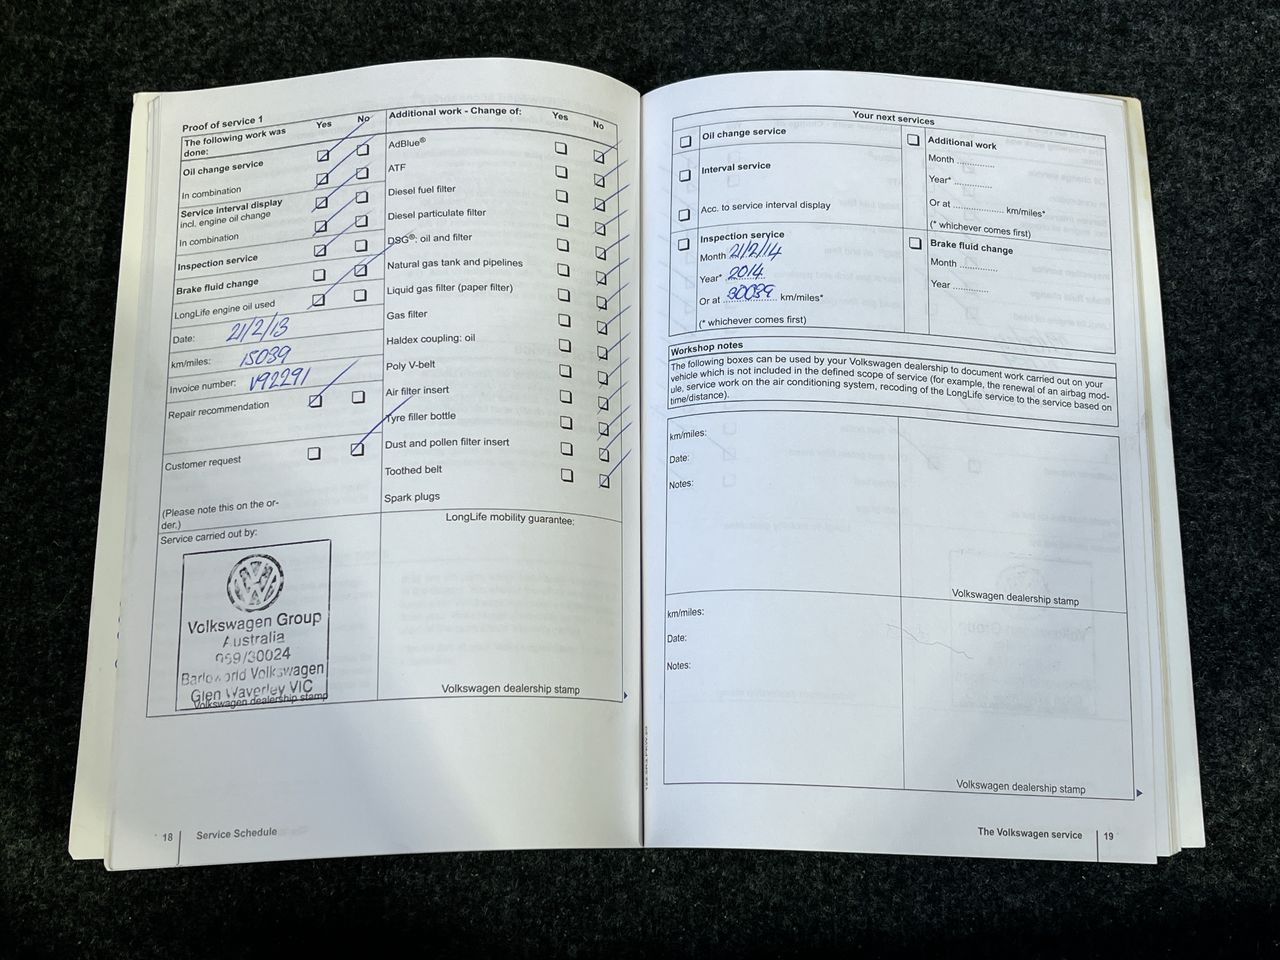 Proof of service 1
The following work was done: Yes No
Oil change service
In combination
Service interval display
incl. engine oil change
In combination
Inspection service
Brake fluid change
LongLife engine oil used
Date: 21/2/13
km/miles: 15039
Invoice number: V92291
Repair recommendation
Customer request
(Please note this on the or-
der.)
Service carried out by:
Volkswagen Group
Australia
069/30024
Barloworld Volkswagen
Glen Waverley VIC
Volkswagen dealership stamp
Additional work - Change of: Yes No
AdBlue®
ATF
Diesel fuel filter
Diesel particulate filter
DSG®: oil and filter
Natural gas tank and pipelines
Liquid gas filter (paper filter)
Gas filter
Haldex coupling: oil
Poly V-belt
Air filter insert
Tyre filler bottle
Dust and pollen filter insert
Toothed belt
Spark plugs
LongLife mobility guarantee:
Volkswagen dealership stamp
18 Service Schedule
Your next services
Oil change service
Interval service
Acc. to service interval display
Inspection service
Month 21/2/14
Year* 2014
Or at 30039 km/miles*
(* whichever comes first)
Additional work
Month .............
Year* .............
Or at .................. km/miles*
(* whichever comes first)
Brake fluid change
Month .............
Year .............
Workshop notes
The following boxes can be used by your Volkswagen dealership to document work carried out on your
vehicle which is not included in the defined scope of service (for example, the renewal of an airbag mod-
ule, service work on the air conditioning system, recoding of the LongLife service to the service based on
time/distance).
km/miles:
Date:
Notes:
Volkswagen dealership stamp
km/miles:
Date:
Notes:
Volkswagen dealership stamp
The Volkswagen service 19